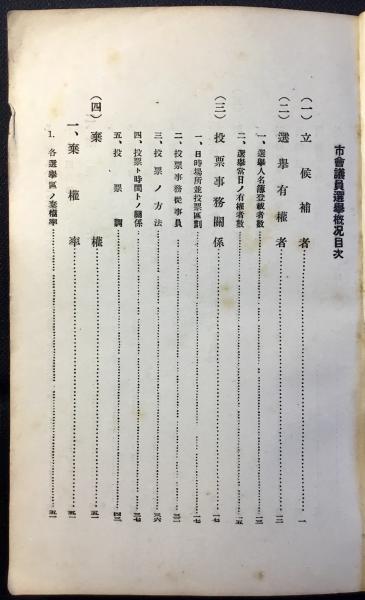 市會議員選擧概況目次
(一) 立候補者……一
(二) 選擧有權者……一二
一、選擧人名簿登載者數……一三
二、選擧當日ノ有權者數……一五
(三) 投票事務關係……一七
一、日時場所並投票區劃……一七
二、投票事務從事員……三二
三、投票ノ方法……三六
四、投票ト時間トノ關係……三七
五、投票調……四三
(四) 棄權……五一
一、棄權率……五一
1. 各選擧區ノ棄權率……五一